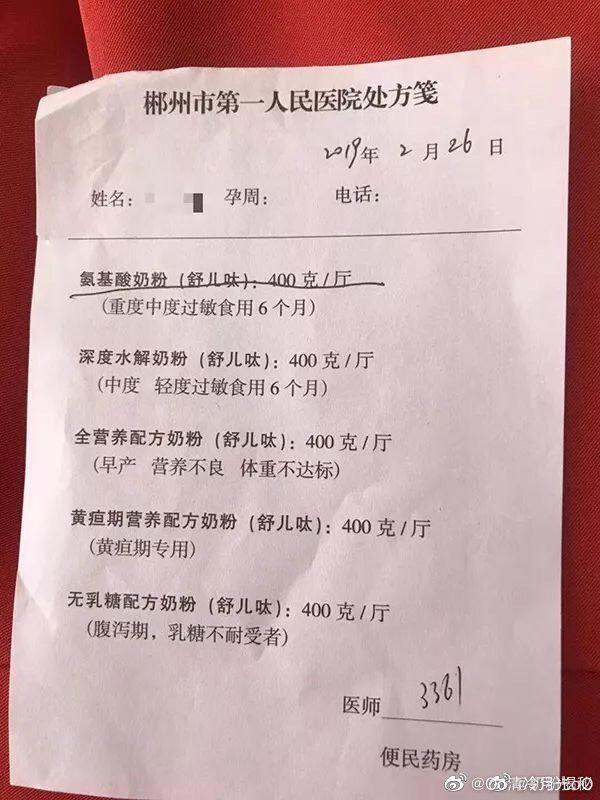 郴州市第一人民医院处方笺
2019年 2月26日
姓名: 孕周: 电话:
氨基酸奶粉(舒儿呔): 400克/厅
(重度中度过敏食用6个月)
深度水解奶粉(舒儿呔): 400克/厅
(中度 轻度过敏食用6个月)
全营养配方奶粉(舒儿呔): 400克/厅
(早产 营养不良 体重不达标)
黄疸期营养配方奶粉(舒儿呔): 400克/厅
(黄疸期专用)
无乳糖配方奶粉(舒儿呔): 400克/厅
(腹泻期,乳糖不耐受者)
医师 3361
便民药房